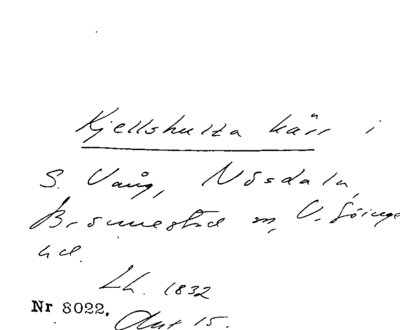 Kjellshulta kärr i
S. Vång, Nösdala,
Brönnestad m, V. Göinge
hd.
Lh. 1832
Nr 8022. Akt 15.